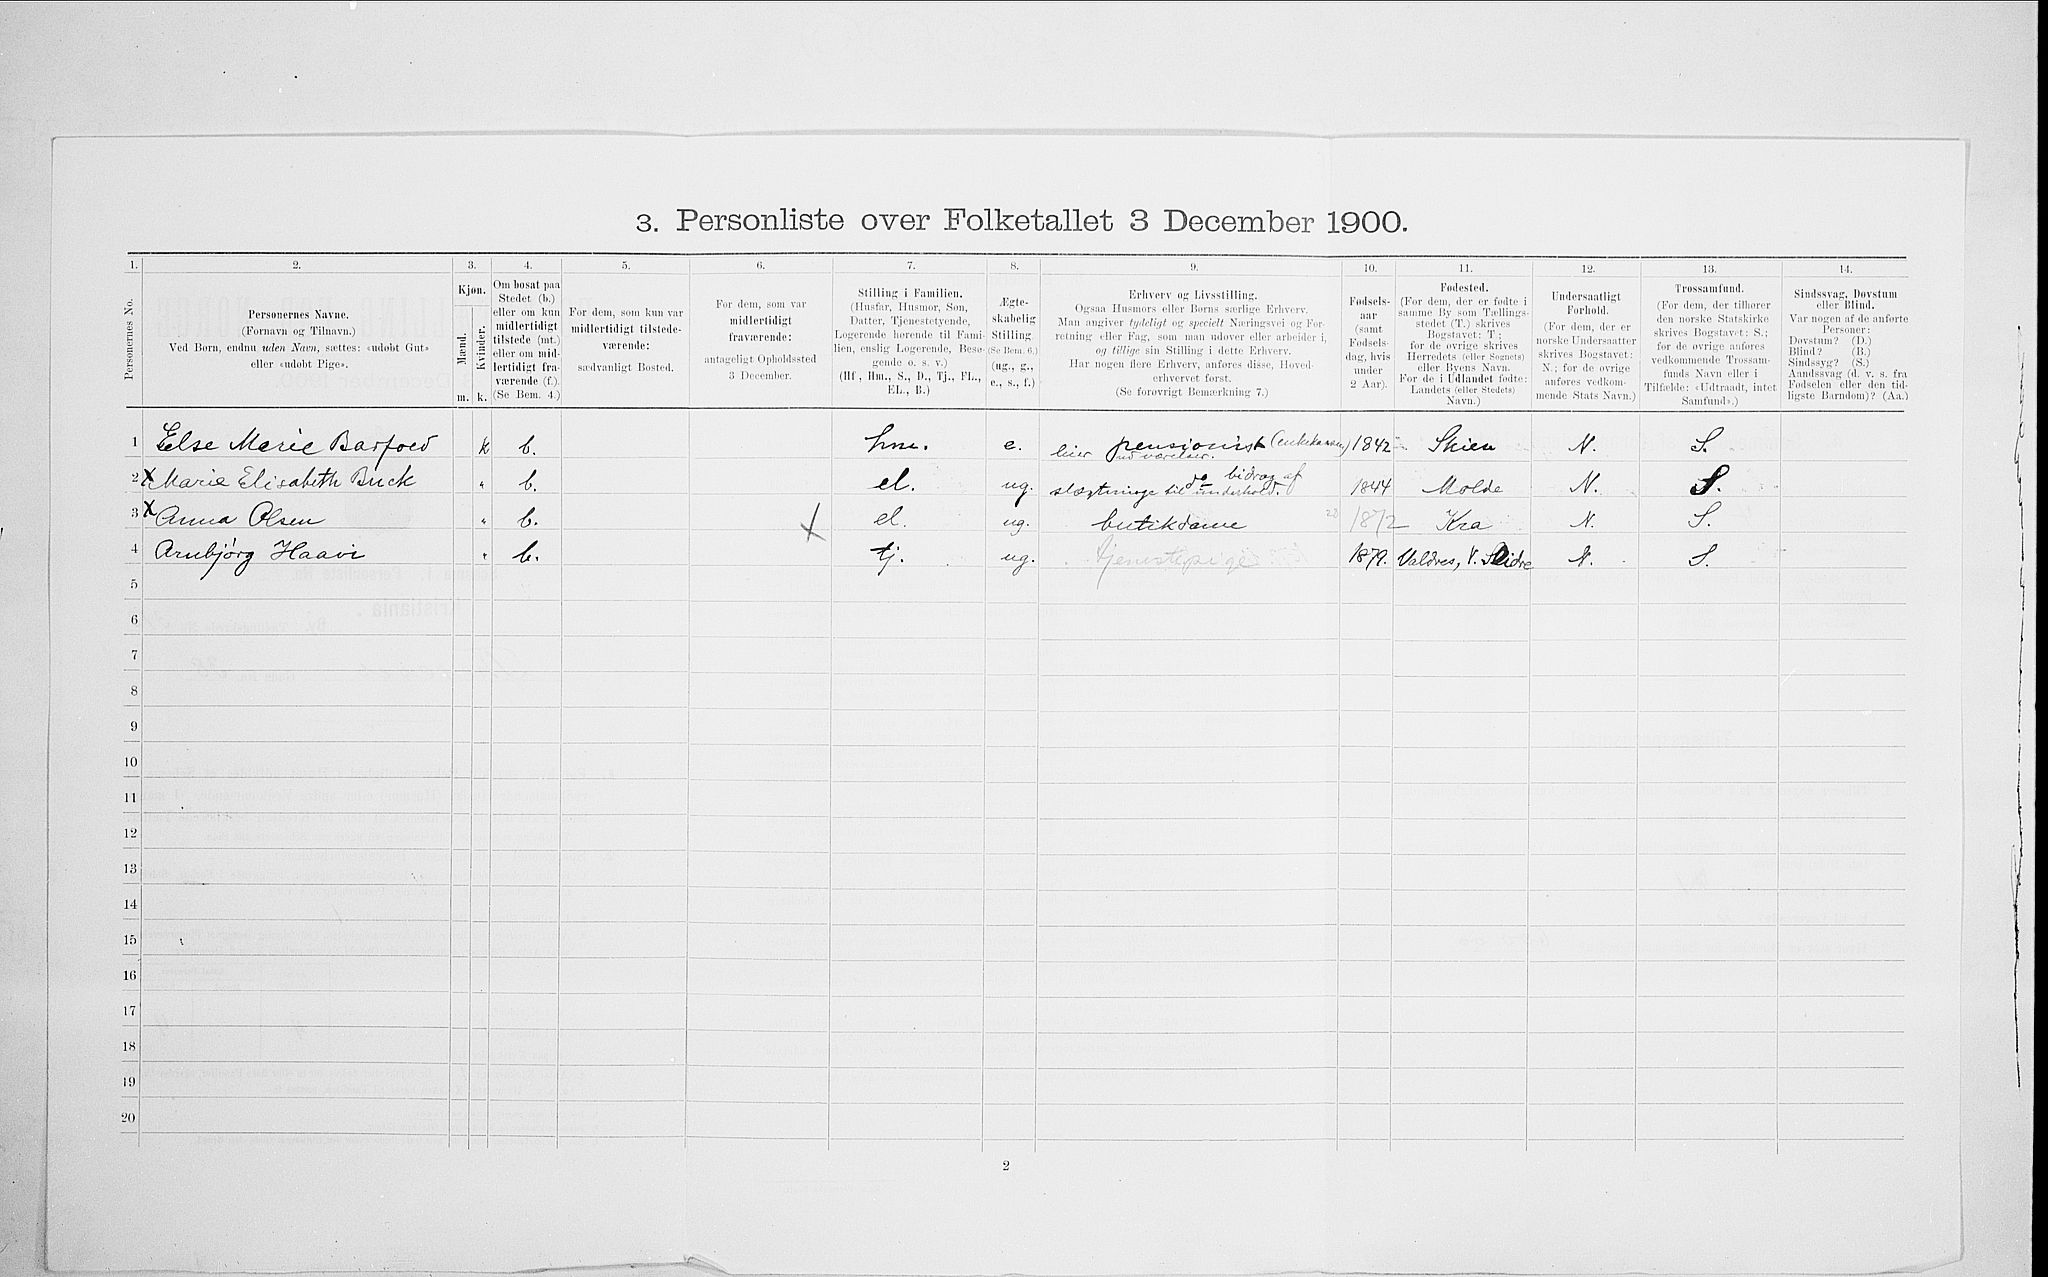 3. Personliste over Folketallet 3 December 1900.
1. 2. 3. 4. 5. 6. 7. 8. 9. 10. 11. 12. 13. 14.
Personernes No.
Personernes Navne.
(Fornavn og Tilnavn.)
Ved Børn, endnu uden Navn, sættes: «udøbt Gut»
eller «udøbt Pige».
Kjøn.
Mænd.
Kvinder.
m. k.
Om bosat paa
Stedet (b.)
eller om kun
midlertidigt
tilstede (mt.)
eller om mid-
lertidigt fra-
værende (f.).
(Se Bem. 4.)
For dem, som kun var
midlertidigt tilstede-
værende:
sædvanligt Bosted.
For dem, som var
midlertidigt
fraværende:
antageligt Opholdssted
3 December.
Stilling i Familien.
(Husfar, Husmor, Søn,
Datter, Tjenestetyende,
Logerende hørende til Fami-
lien, enslig Logerende, Besø-
gende o. s. v.)
(Hf., Hm., S., D., Tj., FL.,
EL., B.)
Ægte-
skabelig
Stilling.
(Se Bem. 6.)
(ug., g.,
e., s., f.)
Erhverv og Livsstilling.
Ogsaa Husmors eller Børns særlige Erhverv.
Man angiver tydeligt og specielt Næringsvei og For-
retning eller Fag, som man udøver eller arbeider i,
og tillige sin Stilling i dette Erhverv.
Har nogen flere Erhverv, anføres disse, Hoved-
erhvervet først.
(Se forøvrigt Bemærkning 7.)
Fødsels-
aar
(samt
Fødsels-
dag, hvis
under
2 Aar).
Fødested.
(For dem, der er fødte i
samme By som Tællings-
stedet (T.) skrives
Bogstavet: T.;
for de øvrige skrives
Herredets (eller Sognets)
eller Byens Navn.
For de i Udlandet fødte:
Landets (eller Stedets)
Navn.)
Undersaatligt
Forhold.
(For dem, der er
norske Undersaatter
skrives Bogstavet:
N.; for de øvrige
anføres vedkom-
mende Stats Navn.)
Trossamfund.
(For dem, der tilhører
den norske Statskirke
skrives Bogstavet: S.;
for de øvrige anføres
vedkommende Trossam-
funds Navn eller i
Tilfælde: «Udtraadt, intet
Samfund».)
Sindssvag, Døvstum
eller Blind.
Var nogen af de anførte
Personer:
Døvstum? (D.)
Blind? (B.)
Sindssyg? (S.)
Aandssvag (d. v. s. fra
Fødselen eller den tid-
ligste Barndom)? (Aa.)
1 Else Marie Barfoed k b. hm. e. pensjonist (enkekassen) leier ud værelser. 1842 Skien N. S.
2 X Marie Elisabeth Buck " b. el. ug. bidrag af slægtninge til underhold. 1844 Molde N. S.
3 X Anna Olsen " b. X el. ug. butikdame 28 1872 Kra N. S.
4 Arnbjørg Haavi " b. tj. ug. tjenestepige 1879. Valdres, V. Slidre N. S.
5
6
7
8
9
10
11
12
13
14
15
16
17
18
19
20
2